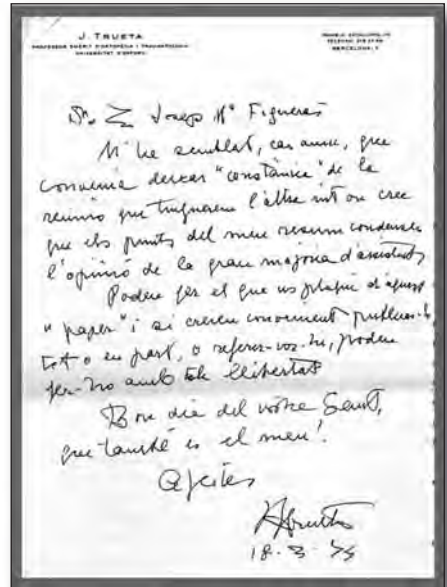 J. TRUETA
PROFESSOR EMÈRIT D'ORTOPÈDIA I TRAUMATOLOGIA
UNIVERSITAT D'OXFORD
BARCELONA
Sr. Josep Mª Figueras
M'ha semblat, car amic, que
convenia deixar "constància" de la
reunió que tinguérem l'altra nit on crec
que els punts del meu resum condensen
l'opinió de la gran majoria d'assistents
Podeu fer el que us plagui d'aquest
"paper" i si creieu convenient publicar-lo
tot o en part, o referir-vos-hi, podeu
fer-ho amb tota llibertat
Bon dia del vostre Sant,
que també és el meu!
J Trueta
18-3-